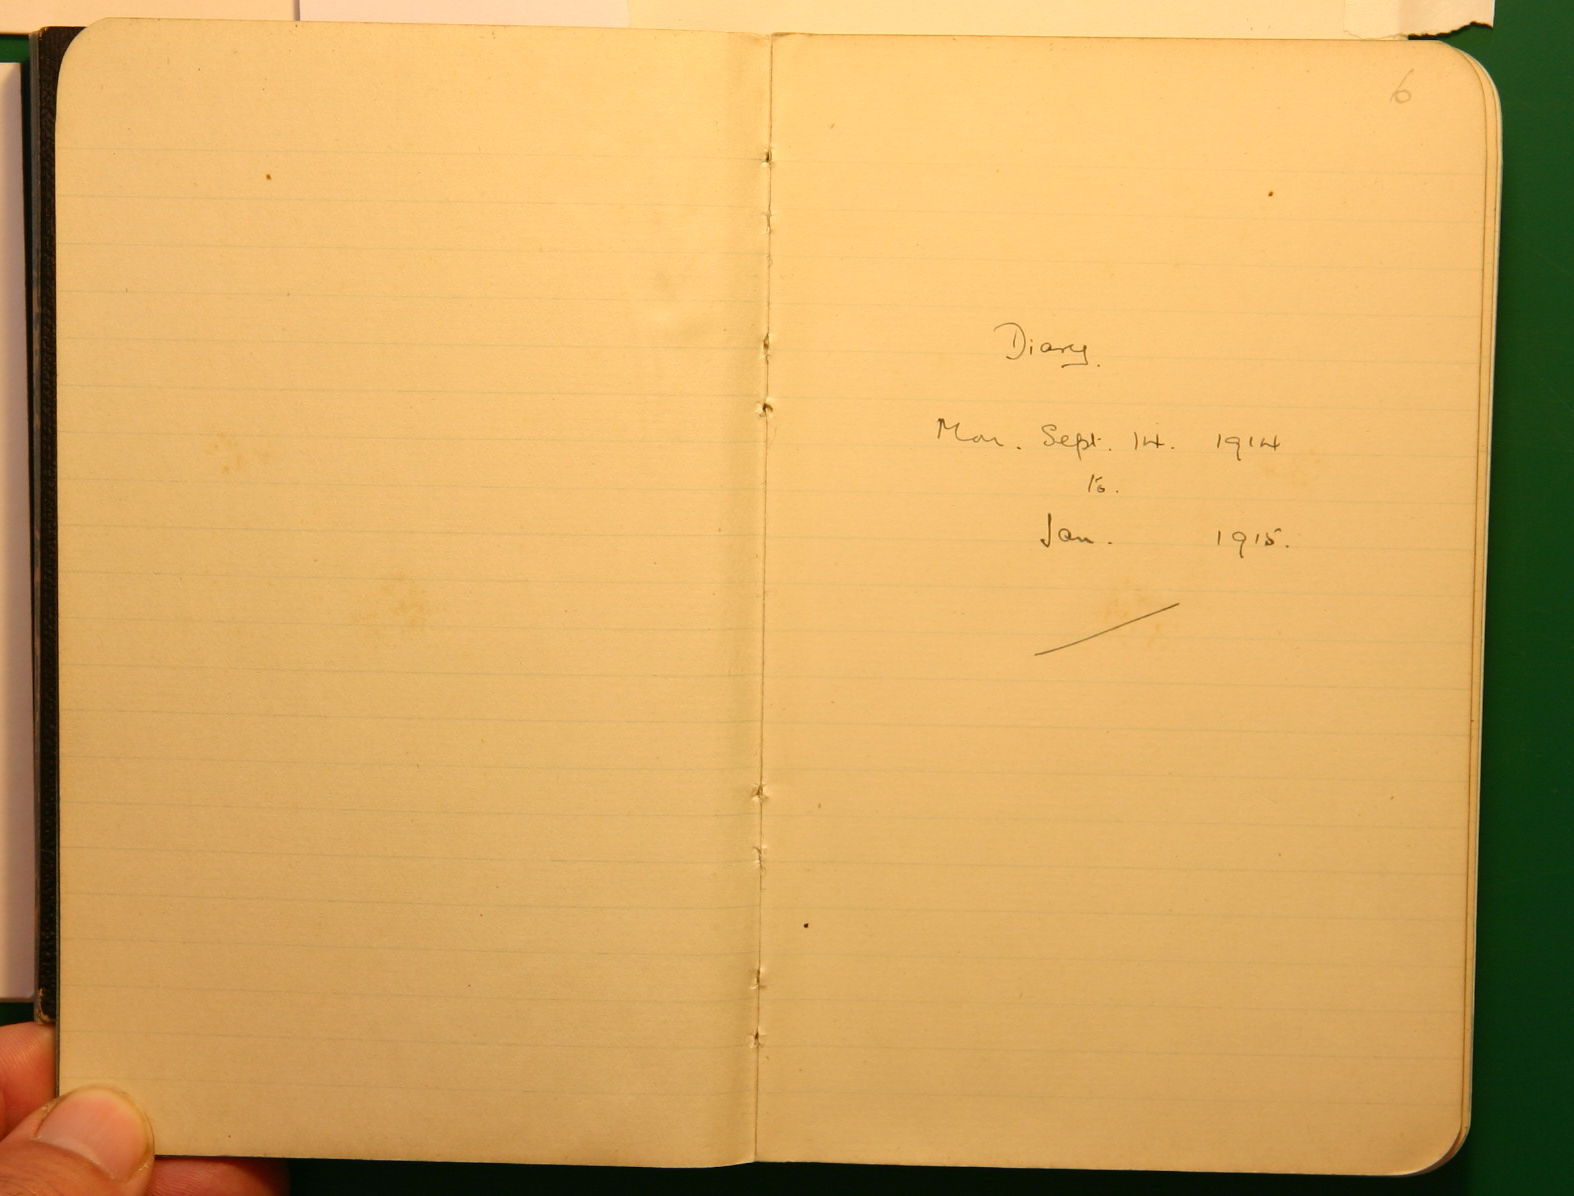 6
Diary.
Mon. Sept. 14. 1914
to.
Jan. 1915.